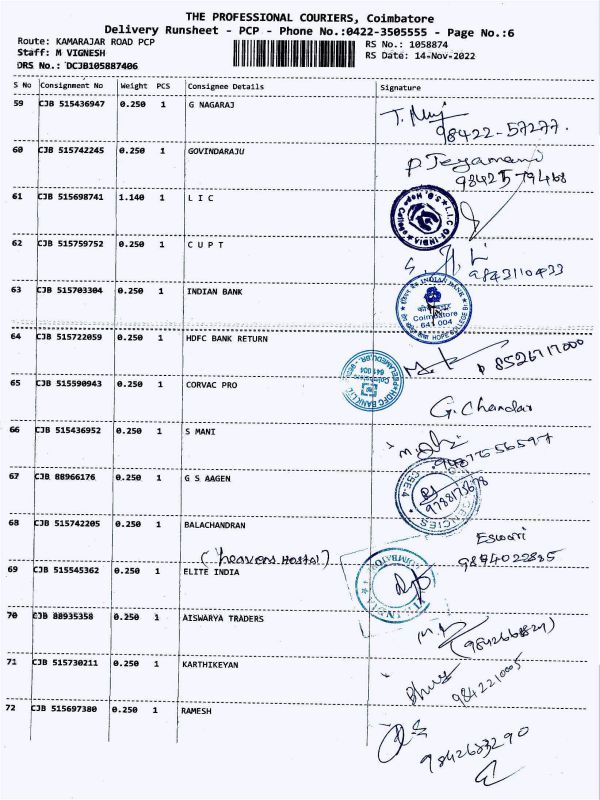 THE PROFESSIONAL COURIERS, Coimbatore
Delivery Runsheet - PCP - Phone No.:0422-3505555 - Page No.:6
Route: KAMARAJAR ROAD PCP RS No.: 1058874
Staff: M VIGNESH RS Date: 14-Nov-2022
DRS No.: DCJB105887406
S No Consignment No Weight PCS Consignee Details Signature
59 CJB 515436947 0.250 1 G NAGARAJ
98422-57277.
60 CJB 515742245 0.250 1 GOVINDARAJU
P Jeyamani
98425 79468
61 CJB 515698741 1.140 1 L I C
L.I.C. OF INDIA
62 CJB 515759752 0.250 1 C U P T
9843110433
63 CJB 515703304 0.250 1 INDIAN BANK
INDIAN BANK
Coimbatore
641 004
HOPE COLLEGE
64 CJB 515722059 0.250 1 HDFC BANK RETURN
8526717000
HDFC BANK LTD
Coimbatore
641 004
65 CJB 515590943 0.250 1 CORVAC PRO
G. Chandar
66 CJB 515436952 0.250 1 S MANI
67 CJB 88966176 0.250 1 G S AAGEN
CSE-4
9788175678
68 CJB 515742205 0.250 1 BALACHANDRAN
Eswari
(heavens Hostel)
9894022885
69 CJB 515545362 0.250 1 ELITE INDIA
COIMBATORE
70 CJB 88935358 0.250 1 AISWARYA TRADERS
71 CJB 515730211 0.250 1 KARTHIKEYAN
9842210005
72 CJB 515697380 0.250 1 RAMESH
9842683290